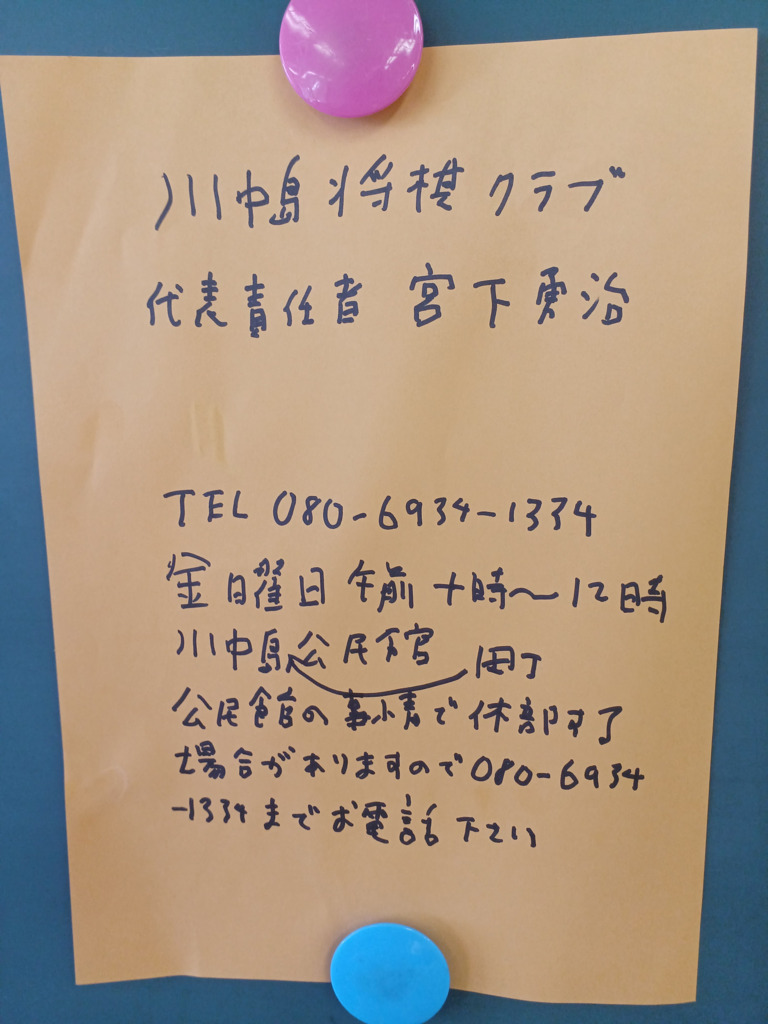 川中島将棋クラブ
代表責任者 宮下勇治
TEL 080-6934-1334
金曜日 午前十時〜12時
川中島町公民館
公民館の事情で休部する
場合がありますので080-6934
-1334までお電話下さい